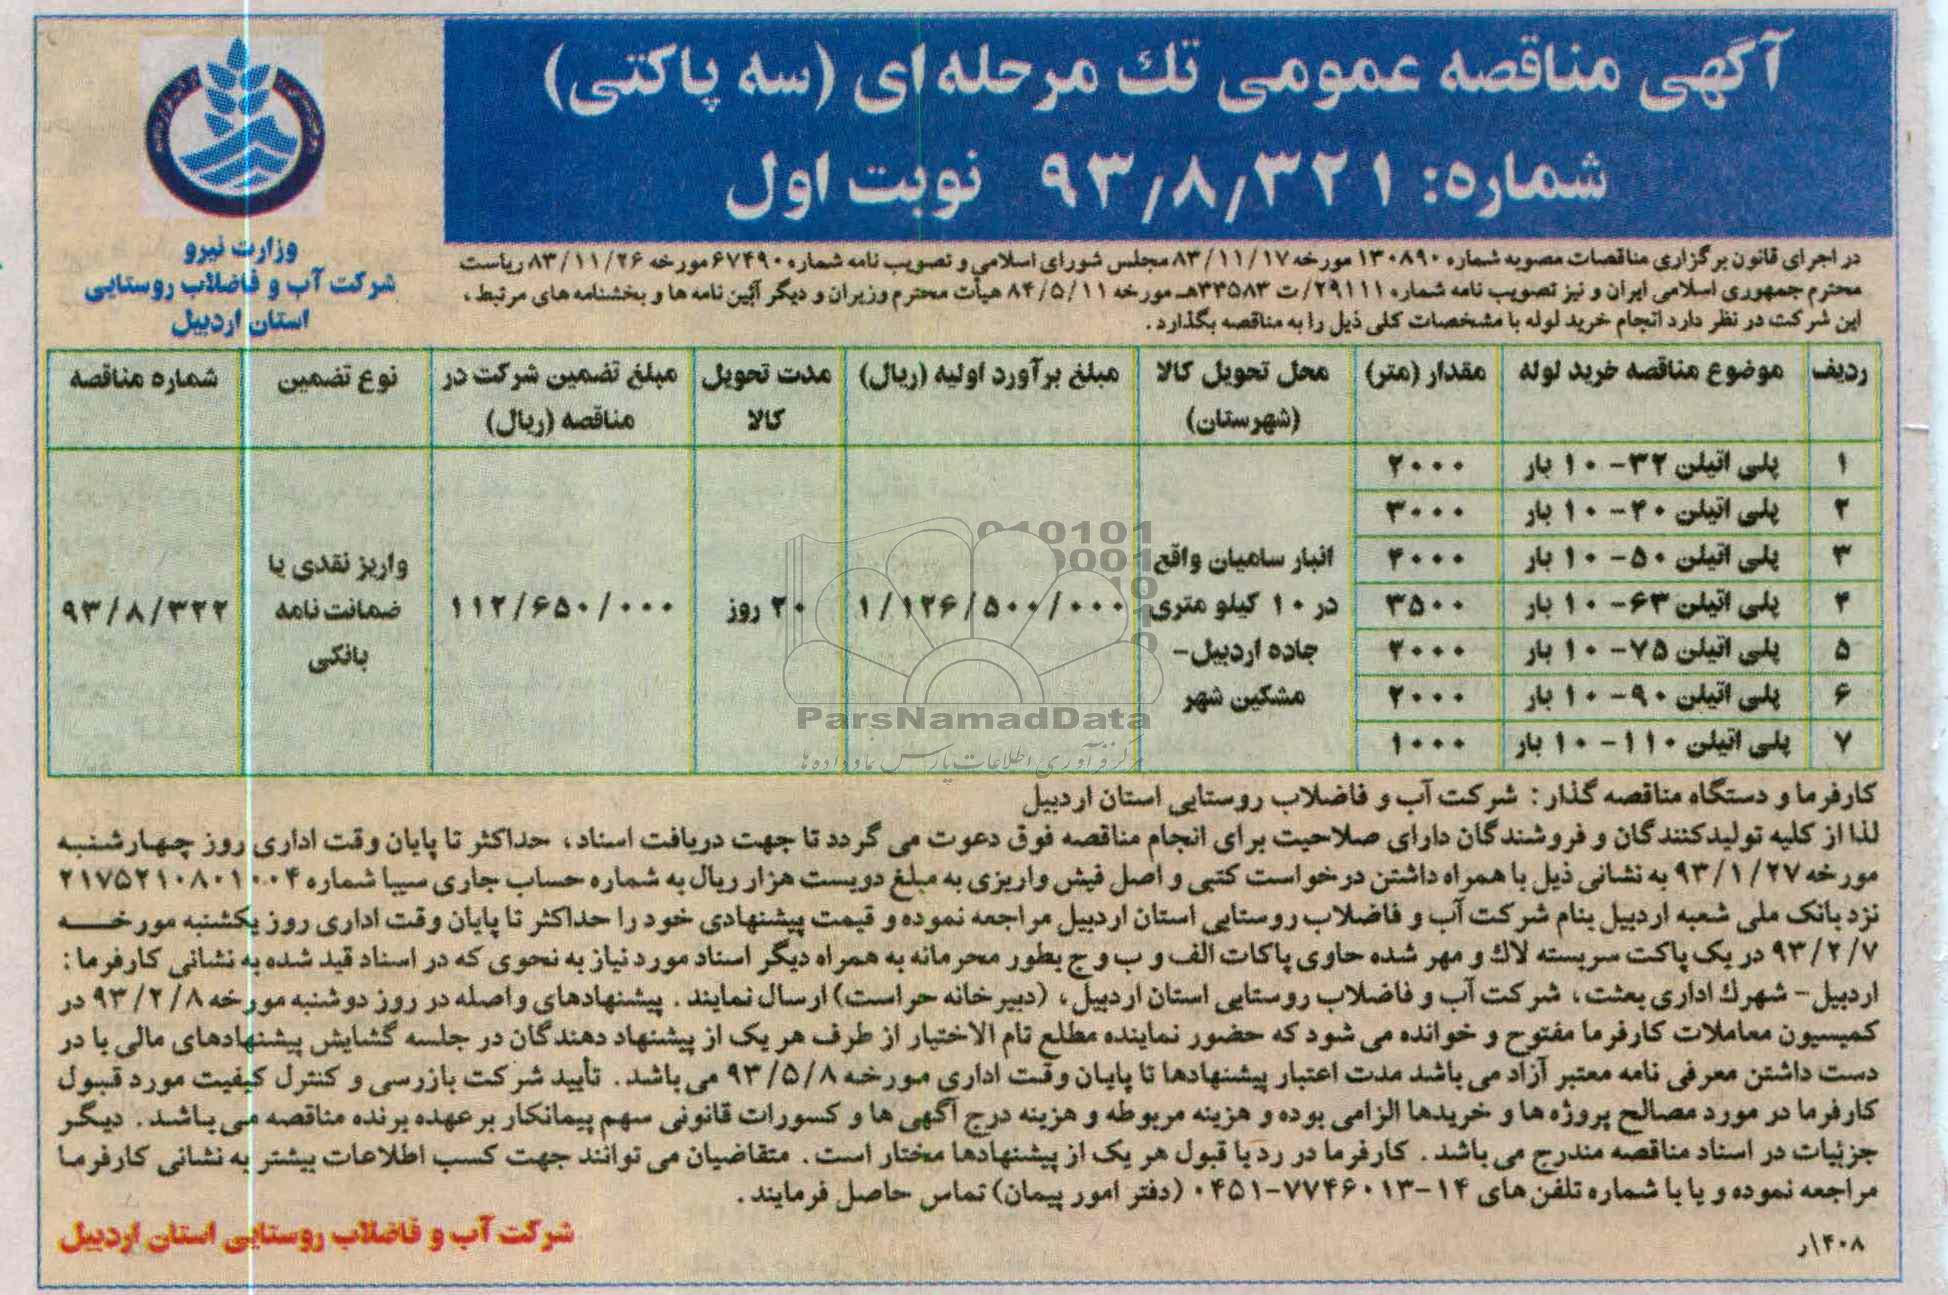 آگهی مناقصه عمومی تك مرحله‌ای (سه پاکتی)
شماره: ۹۳/۸/۳۲۱ نوبت اول
وزارت نیرو
شرکت آب و فاضلاب روستایی
استان اردبیل
در اجرای قانون برگزاری مناقصات مصوبه شماره ۱۳۰۸۹۰ مورخه ۸۳/۱۱/۱۷ مجلس شورای اسلامی و تصویب نامه شماره ۶۷۴۹۰ مورخه ۸۳/۱۱/۲۶ ریاست
محترم جمهوری اسلامی ایران و نیز تصویب نامه شماره ۲۹۱۱۱/ت ۳۳۵۸۳هـ مورخه ۸۴/۵/۱۱ هیأت محترم وزیران و دیگر آئین نامه ها و بخشنامه های مرتبط،
این شرکت در نظر دارد انجام خرید لوله با مشخصات کلی ذیل را به مناقصه بگذارد.
ردیف موضوع مناقصه خرید لوله مقدار (متر) محل تحویل کالا (شهرستان) مبلغ برآورد اولیه (ریال) مدت تحویل کالا مبلغ تضمین شرکت در مناقصه (ریال) نوع تضمین شماره مناقصه
۱ پلی اتیلن ۳۲- ۱۰ بار ۲۰۰۰
۲ پلی اتیلن ۴۰- ۱۰ بار ۳۰۰۰
۳ پلی اتیلن ۵۰- ۱۰ بار ۴۰۰۰
۴ پلی اتیلن ۶۳- ۱۰ بار ۳۵۰۰
۵ پلی اتیلن ۷۵- ۱۰ بار ۲۰۰۰
۶ پلی اتیلن ۹۰- ۱۰ بار ۲۰۰۰
۷ پلی اتیلن ۱۱۰- ۱۰ بار ۱۰۰۰
انبار سامیان واقع
در ۱۰ کیلو متری
جاده اردبیل-
مشکین شهر
۱/۱۲۶/۵۰۰/۰۰۰
۲۰ روز
۱۱۲/۶۵۰/۰۰۰
واریز نقدی یا
ضمانت نامه
بانکی
۹۳/۸/۳۲۲
ParsNamadData
مرکز فرآوری اطلاعات پارس نماد داده ها
کارفرما و دستگاه مناقصه گذار: شرکت آب و فاضلاب روستایی استان اردبیل
لذا از کلیه تولیدکنندگان و فروشندگان دارای صلاحیت برای انجام مناقصه فوق دعوت می گردد تا جهت دریافت اسناد، حداکثر تا پایان وقت اداری روز چهارشنبه
مورخه ۹۳/۱/۲۷ به نشانی ذیل با همراه داشتن درخواست کتبی و اصل فیش واریزی به مبلغ دویست هزار ریال به شماره حساب جاری سیبا شماره ۲۱۷۵۲۱۰۸۰۱۰۰۴
نزد بانک ملی شعبه اردبیل بنام شرکت آب و فاضلاب روستایی استان اردبیل مراجعه نموده و قیمت پیشنهادی خود را حداکثر تا پایان وقت اداری روز یکشنبه مورخــه
۹۳/۲/۷ در یک پاکت سربسته لاك و مهر شده حاوی پاکات الف و ب و ج بطور محرمانه به همراه دیگر اسناد مورد نیاز به نحوی که در اسناد قید شده به نشانی کارفرما:
اردبیل- شهرك اداری بعثت، شرکت آب و فاضلاب روستایی استان اردبیل، (دبیرخانه حراست) ارسال نمایند. پیشنهادهای واصله در روز دوشنبه مورخه ۹۳/۲/۸ در
کمیسیون معاملات کارفرما مفتوح و خوانده می شود که حضور نماینده مطلع تام الاختیار از طرف هر یک از پیشنهاد دهندگان در جلسه گشایش پیشنهادهای مالی با در
دست داشتن معرفی نامه معتبر آزاد می باشد مدت اعتبار پیشنهادها تا پایان وقت اداری مورخه ۹۳/۵/۸ می باشد. تأیید شرکت بازرسی و کنترل کیفیت مورد قبول
کارفرما در مورد مصالح پروژه ها و خریدها الزامی بوده و هزینه مربوطه و هزینه درج آگهی ها و کسورات قانونی سهم پیمانکار بر عهده برنده مناقصه می باشد. دیگر
جزئیات در اسناد مناقصه مندرج می باشد. کارفرما در رد یا قبول هر یک از پیشنهادها مختار است. متقاضیان می توانند جهت کسب اطلاعات بیشتر به نشانی کارفرما
مراجعه نموده و یا با شماره تلفن های ۱۴-۷۷۴۶۰۱۳-۰۴۵۱ (دفتر امور پیمان) تماس حاصل فرمایند.
شرکت آب و فاضلاب روستایی استان اردبیل
۱۴۰۸/ر